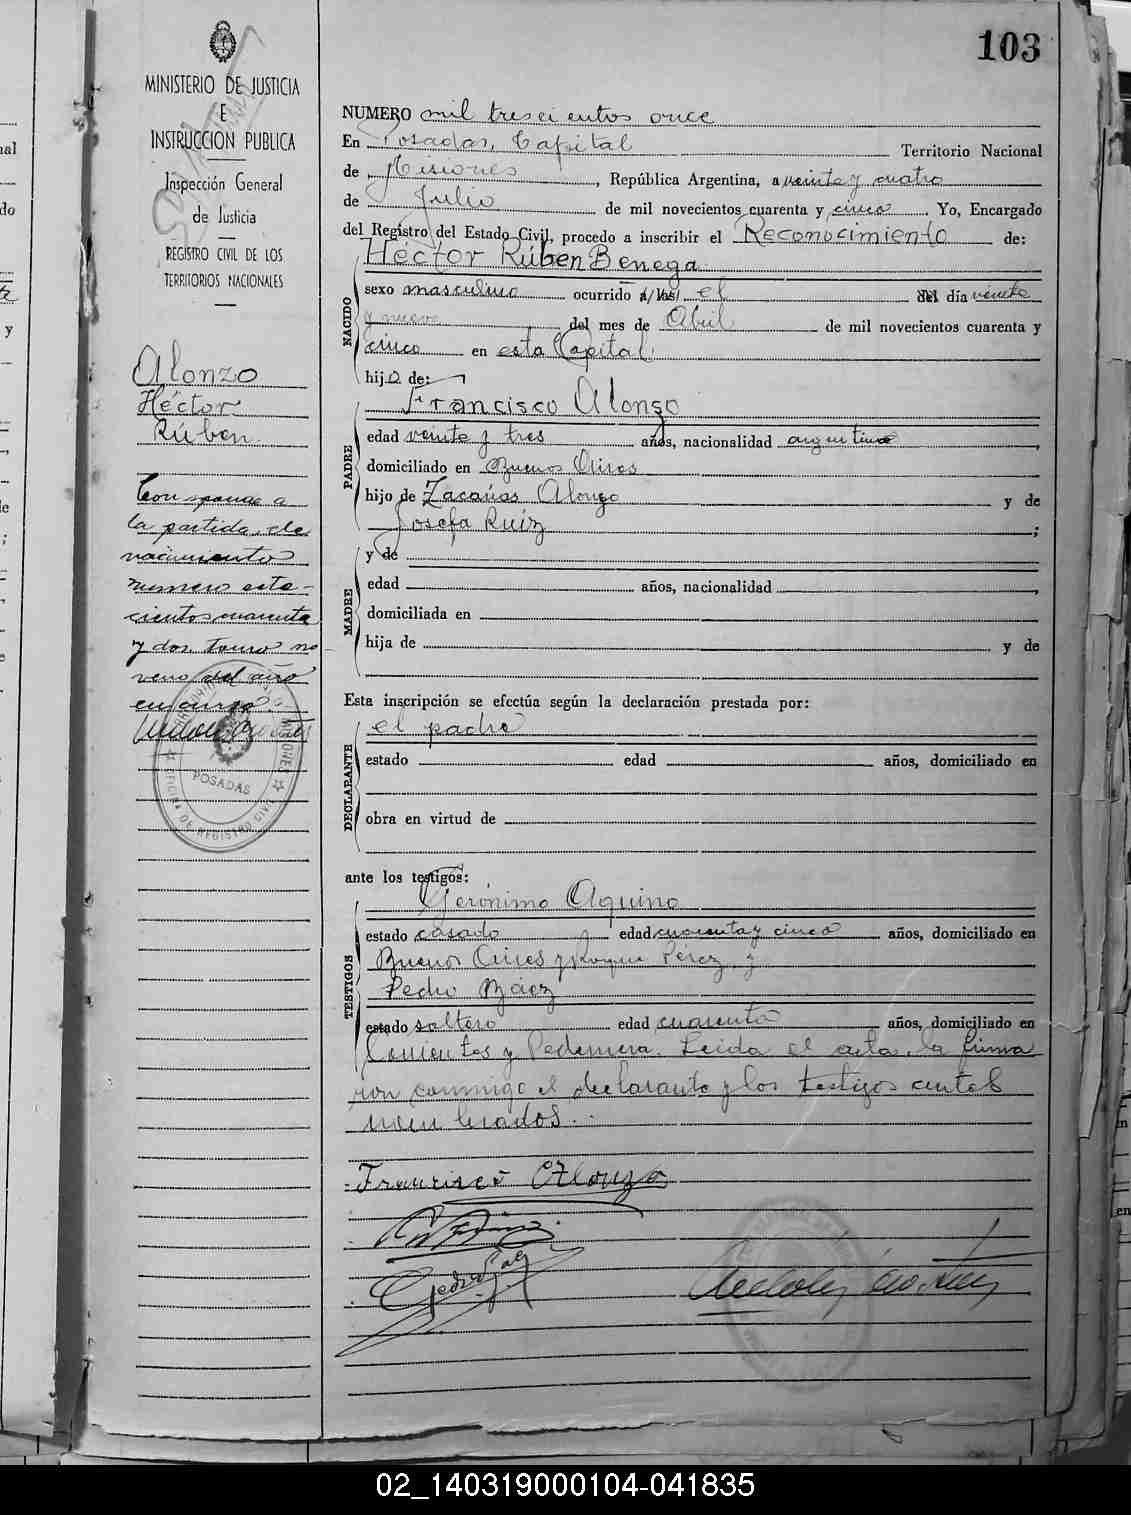 103
MINISTERIO DE JUSTICIA
E
INSTRUCCION PUBLICA
Inspección General
de Justicia
REGISTRO CIVIL DE LOS
TERRITORIOS NACIONALES
Alonzo
Héctor
Rúben
Corresponde a
la partida de
nacimiento
numero sete-
cientos cuarenta
y dos tomo no
veno del año
en curso.-
POSADAS
MISIONES
OFICINA DE REGISTRO CIVIL
NUMERO mil trescientos once
En Posadas, Capital Territorio Nacional
de Misiones, República Argentina, a veinte y cuatro
de Julio de mil novecientos cuarenta y cinco. Yo, Encargado
del Registro del Estado Civil, procedo a inscribir el Reconocimiento de:
NACIDO
Héctor Rúben Benega
sexo masculino ocurrido el día veinte
y nueve del mes de Abril de mil novecientos cuarenta y
cinco en esta Capital
hijo de:
PADRE
Francisco Alonzo
edad veinte y tres años, nacionalidad argentino,
domiciliado en Buenos Aires
hijo de Zacarías Alonzo y de
Josefa Ruiz;
MADRE
y de
edad años, nacionalidad,
domiciliada en
hija de y de
Esta inscripción se efectúa según la declaración prestada por:
DECLARANTE
el padre
estado edad años, domiciliado en
obra en virtud de
ante los testigos:
TESTIGOS
Gerónimo Aquino
estado casado edad cuarenta y cinco años, domiciliado en
Buenos Aires y Roque Pérez, y
Pedro Báez
estado soltero edad cuarenta años, domiciliado en
Corrientes y Pedernera. Leida el acta, la firma
ron conmigo el declarante y los testigos antes
nombrados.-
Francisco Alonzo
02_140319000104-041835